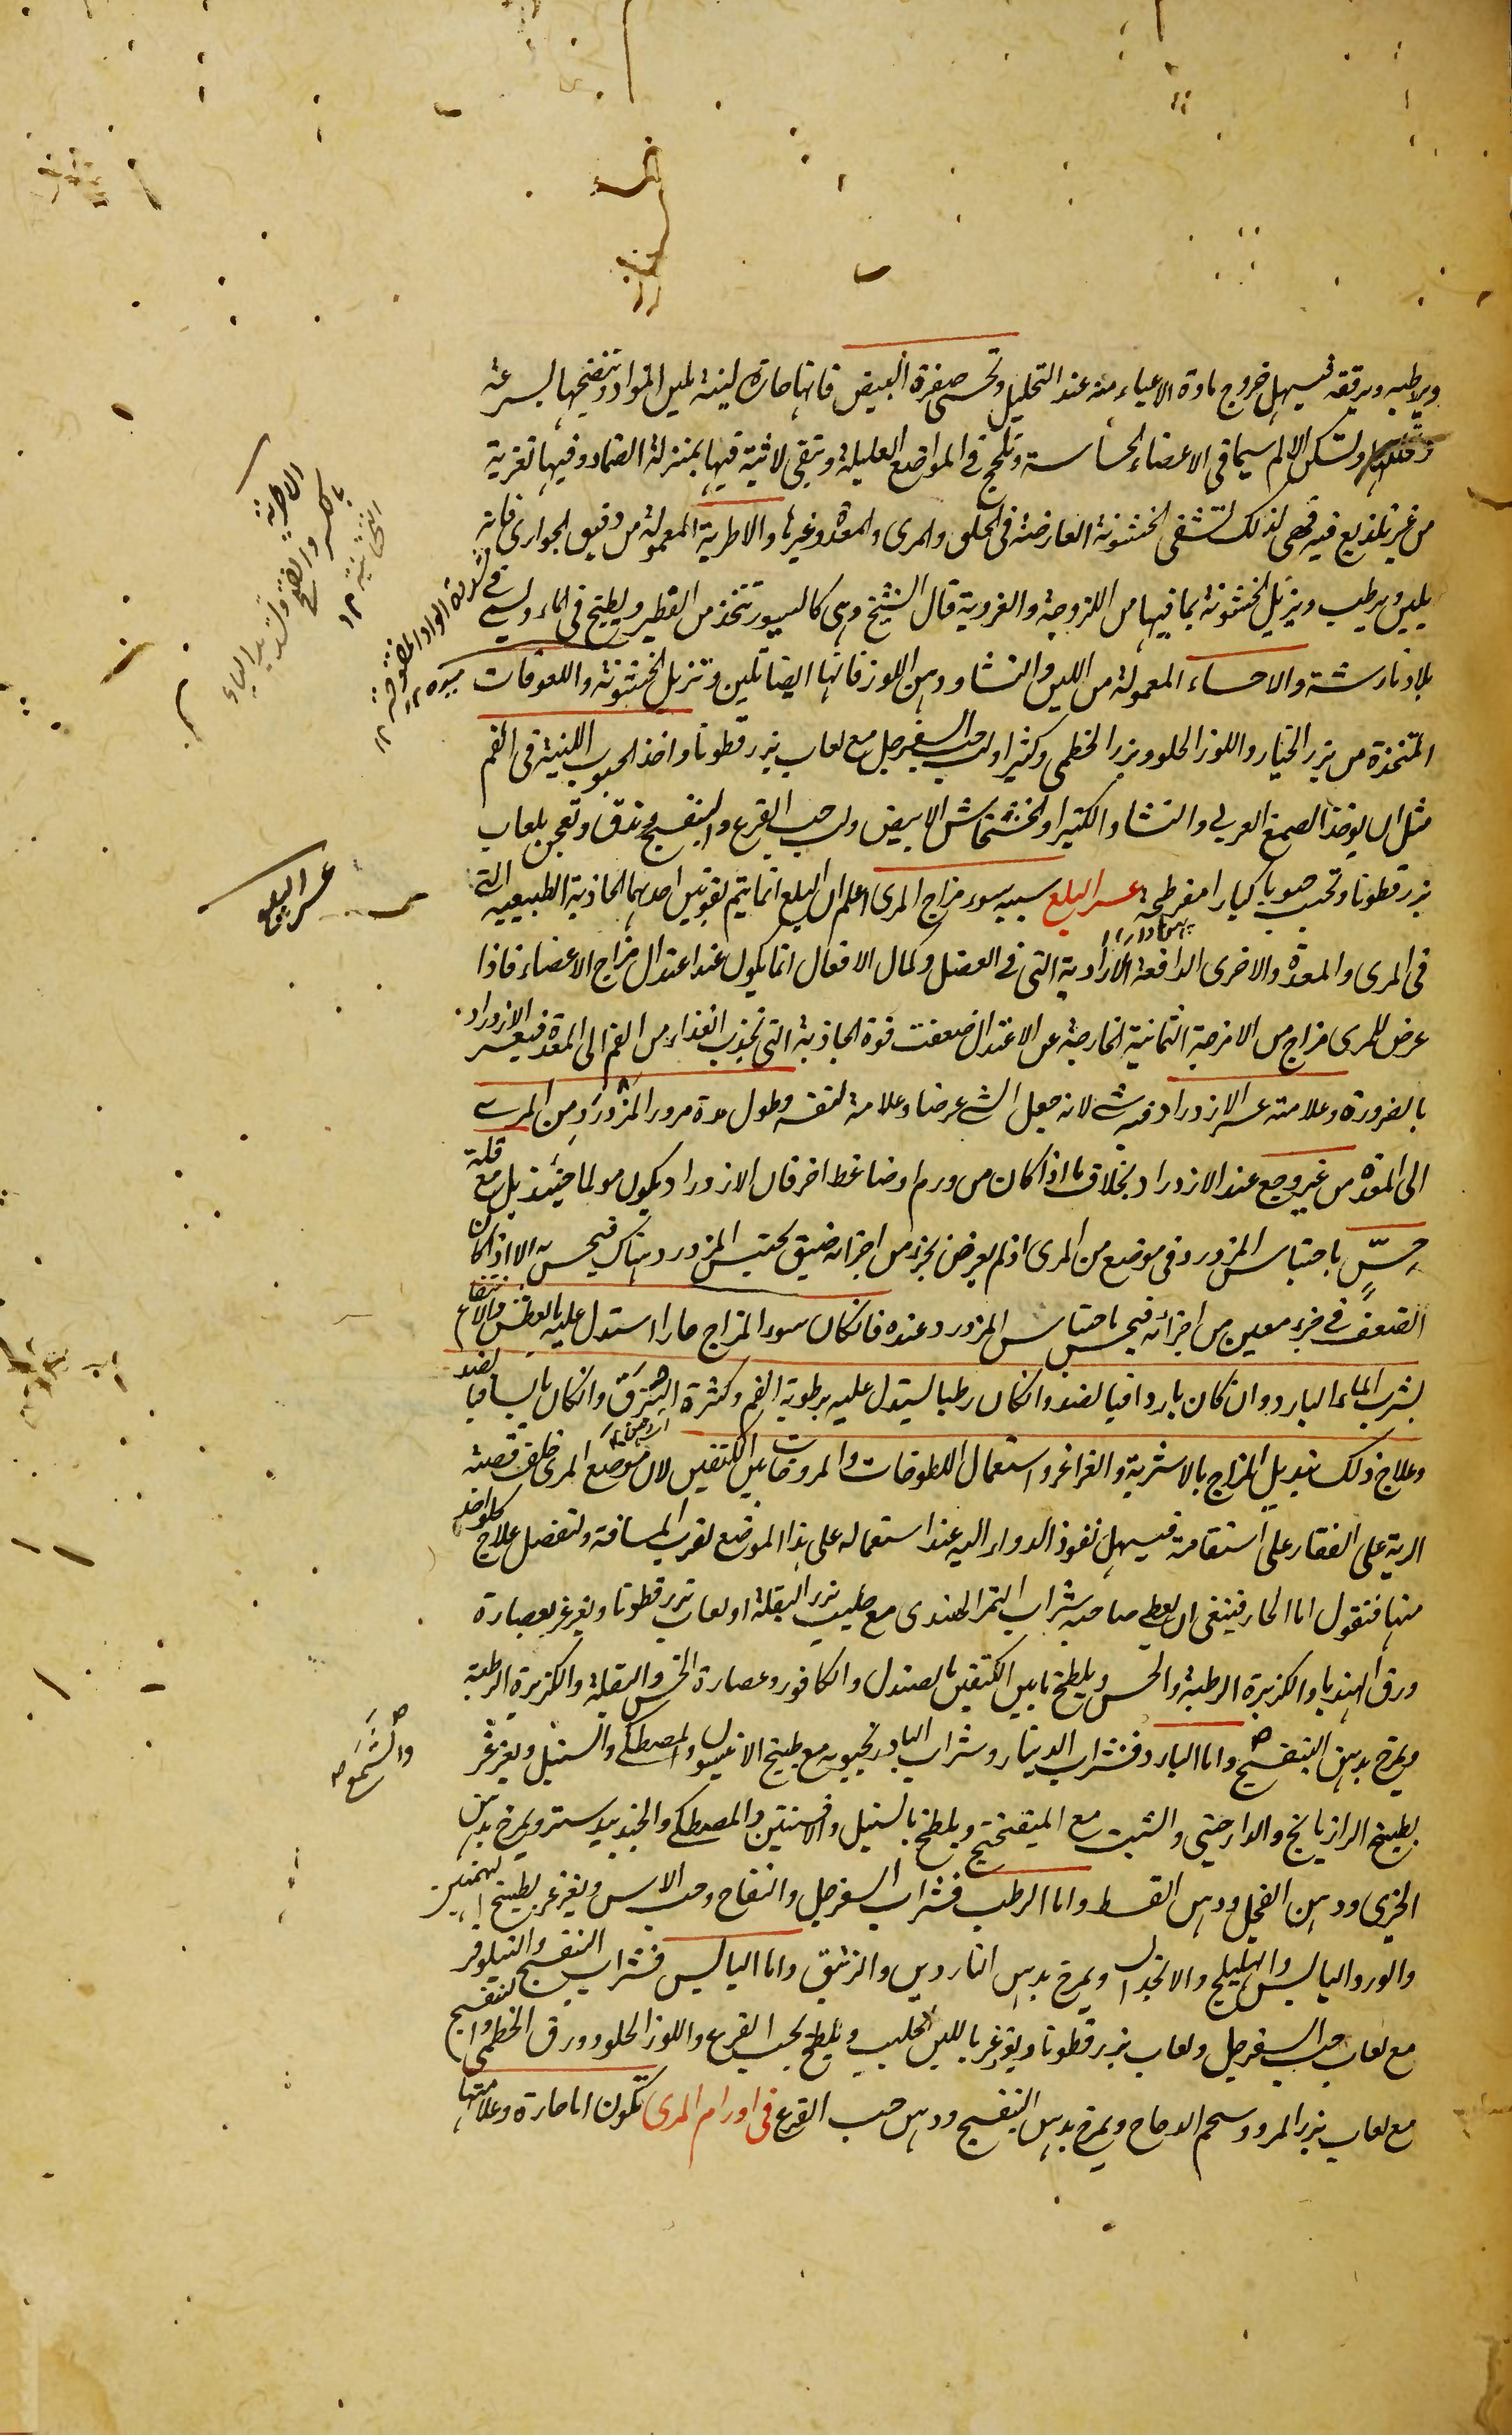 ويرطبه ويرققه فيسهل خروج مادة الاعياء منه عند التحليل وتحسى صفرة البيض فانها حارة لينة تلين المواد وتنضجها بسرعة
ولتسكن الالم سيما فى الاعضاء الحساسة وتلحج فى المواضع العليلة وتبقى لابثة فيها بمنزلة الضماد وفيها تغرية
من غير تلذيع فيه فهى لذلك تشفى الخشونة العارضة فى الحلق والمرى والمعدة وغيرها والاطرية المعمولة من دقيق الحوارى فانه
يلين ويرطب ويزيل الخشونة بما فيها من اللزوجة والغروية قال الشيخ وهى كالسيور تتخذ من الفطير ويطبخ فى الماء ويسمى فى
بلادنا رشتة والاحساء المعمولة من اللبن والنشا ودهن اللوز فانها ايضا تلين وتزيل الخشونة واللعوقات
المتخذة من بزر الخيار واللوز الحلو وبزر الخطمى وكثيرا ولب حب السفرجل مع لعاب بزر قطونا واخذ الحبوب اللينة فى الفم
مثل ان يوخذ الصمغ العربى والنشا والكثيرا والخشخاش الابيض ولب حب القرع والبنفسج وتدق وتعجن بلعاب
بزر قطونا وتحبب حبوبا كبارا مفرطحة عسر البلع سببه سوء مزاج المرى اعلم ان البلع انما يتم بقوتين احدهما الجاذبة الطبيعية التى
فى المرى والمعدة والاخرى الدافعة الارادية التى فى العضل وكمال الافعال انما يكون عند اعتدال مزاج الاعضاء فاذا
عرض للمرى مزاج من الامزجة الثمانية الخارجة عن الاعتدال ضعفت قوة الجاذبة التى تجذب الغذاء من الفم الى المعدة فيعسر الازدراد
بالضرورة وعلامته عسر الازدراد فيه شى لانه جعل الشى عرضا وعلامة لنفسه وطول مدة مرور المزدرد من المرى
الى المعدة من غير وجع عند الازدراد بخلاف ما اذا كان من ورم او ضاغط اخر فان الازدراد يكون مولما حينئذ بل مع قلة
حسٍّ باحتباس المزدرد فى موضع من المرى اذ لم يعرض بجزء من اجزائه ضيق يحتبس المزدرد هناك فيحس به الا اذا كان
الضعف فى جزء معين من اجزائه فيحس باحتباس المزدرد عنده فانكان سوء المزاج حارا استدل عليه بالعطش والانتفاع
بشرب الماء البارد وان كان باردا فبالضد وانكان رطبا يستدل عليه برطوبة الفم وكثرة البزق وانكان يابسا فبالضد
وعلاج ذلك تبديل المزاج بالاشربة والغراغر واستعمال اللطوخات والمروخات بين الكتفين لان موضع المرى خلف قصبة
الرية على الفقار على استقامة فيسهل نفوذ الدواء اليه عند استعماله على هذا الموضع لقرب المسافة ولنفصل علاج كل واحد
منها فنقول اما الحار فينبغى ان يعطى صاحبه شراب التمر الهندى مع حليب بزر البقلة او لعاب بزر قطونا ويغرغر بعصارة
ورق الهندبا والكزبرة الرطبة والخس ويلطخ ما بين الكتفين بالصندل والكافور وعصارة الخس والبقلة والكزبرة الرطبة
ويمرخ بدهن البنفسج واما البارد فشراب الدينار وشراب البادرنجبويه مع طبيخ الانيسون والمصطكى والسنبل ويغرغر
بطبيخ الرازيانج والدارصينى والشبت مع الميفختج ويلطخ بالسنبل والافسنتين والمصطكى والجندبيدستر ويمرخ بدهن
الخيرى ودهن الفجل ودهن القسط واما الرطب فشراب السفرجل والتفاح وحب الاس ويغرغر بطبيخ البهمنين
والورد اليابس والهليلج والانجدان ويمرخ بدهن الناردين والزنبق واما اليابس فشراب البنفسج والنيلوفر
مع لعاب حب السفرجل ولعاب بزر قطونا ويغرغر باللبن الحليب ويلطخ بحب القرع واللوز الحلو وورق الخطمى والبنفسج
مع لعاب بزر المرو وشحم الدجاج ويمرخ بدهن البنفسج ودهن حب القرع فى اورام المرى تكون اما حارة وعلامتها
الاطرية
بالكسر والفتح وتشديد الياء
التحتانية ١٢
عسر البلع
والشمع صح